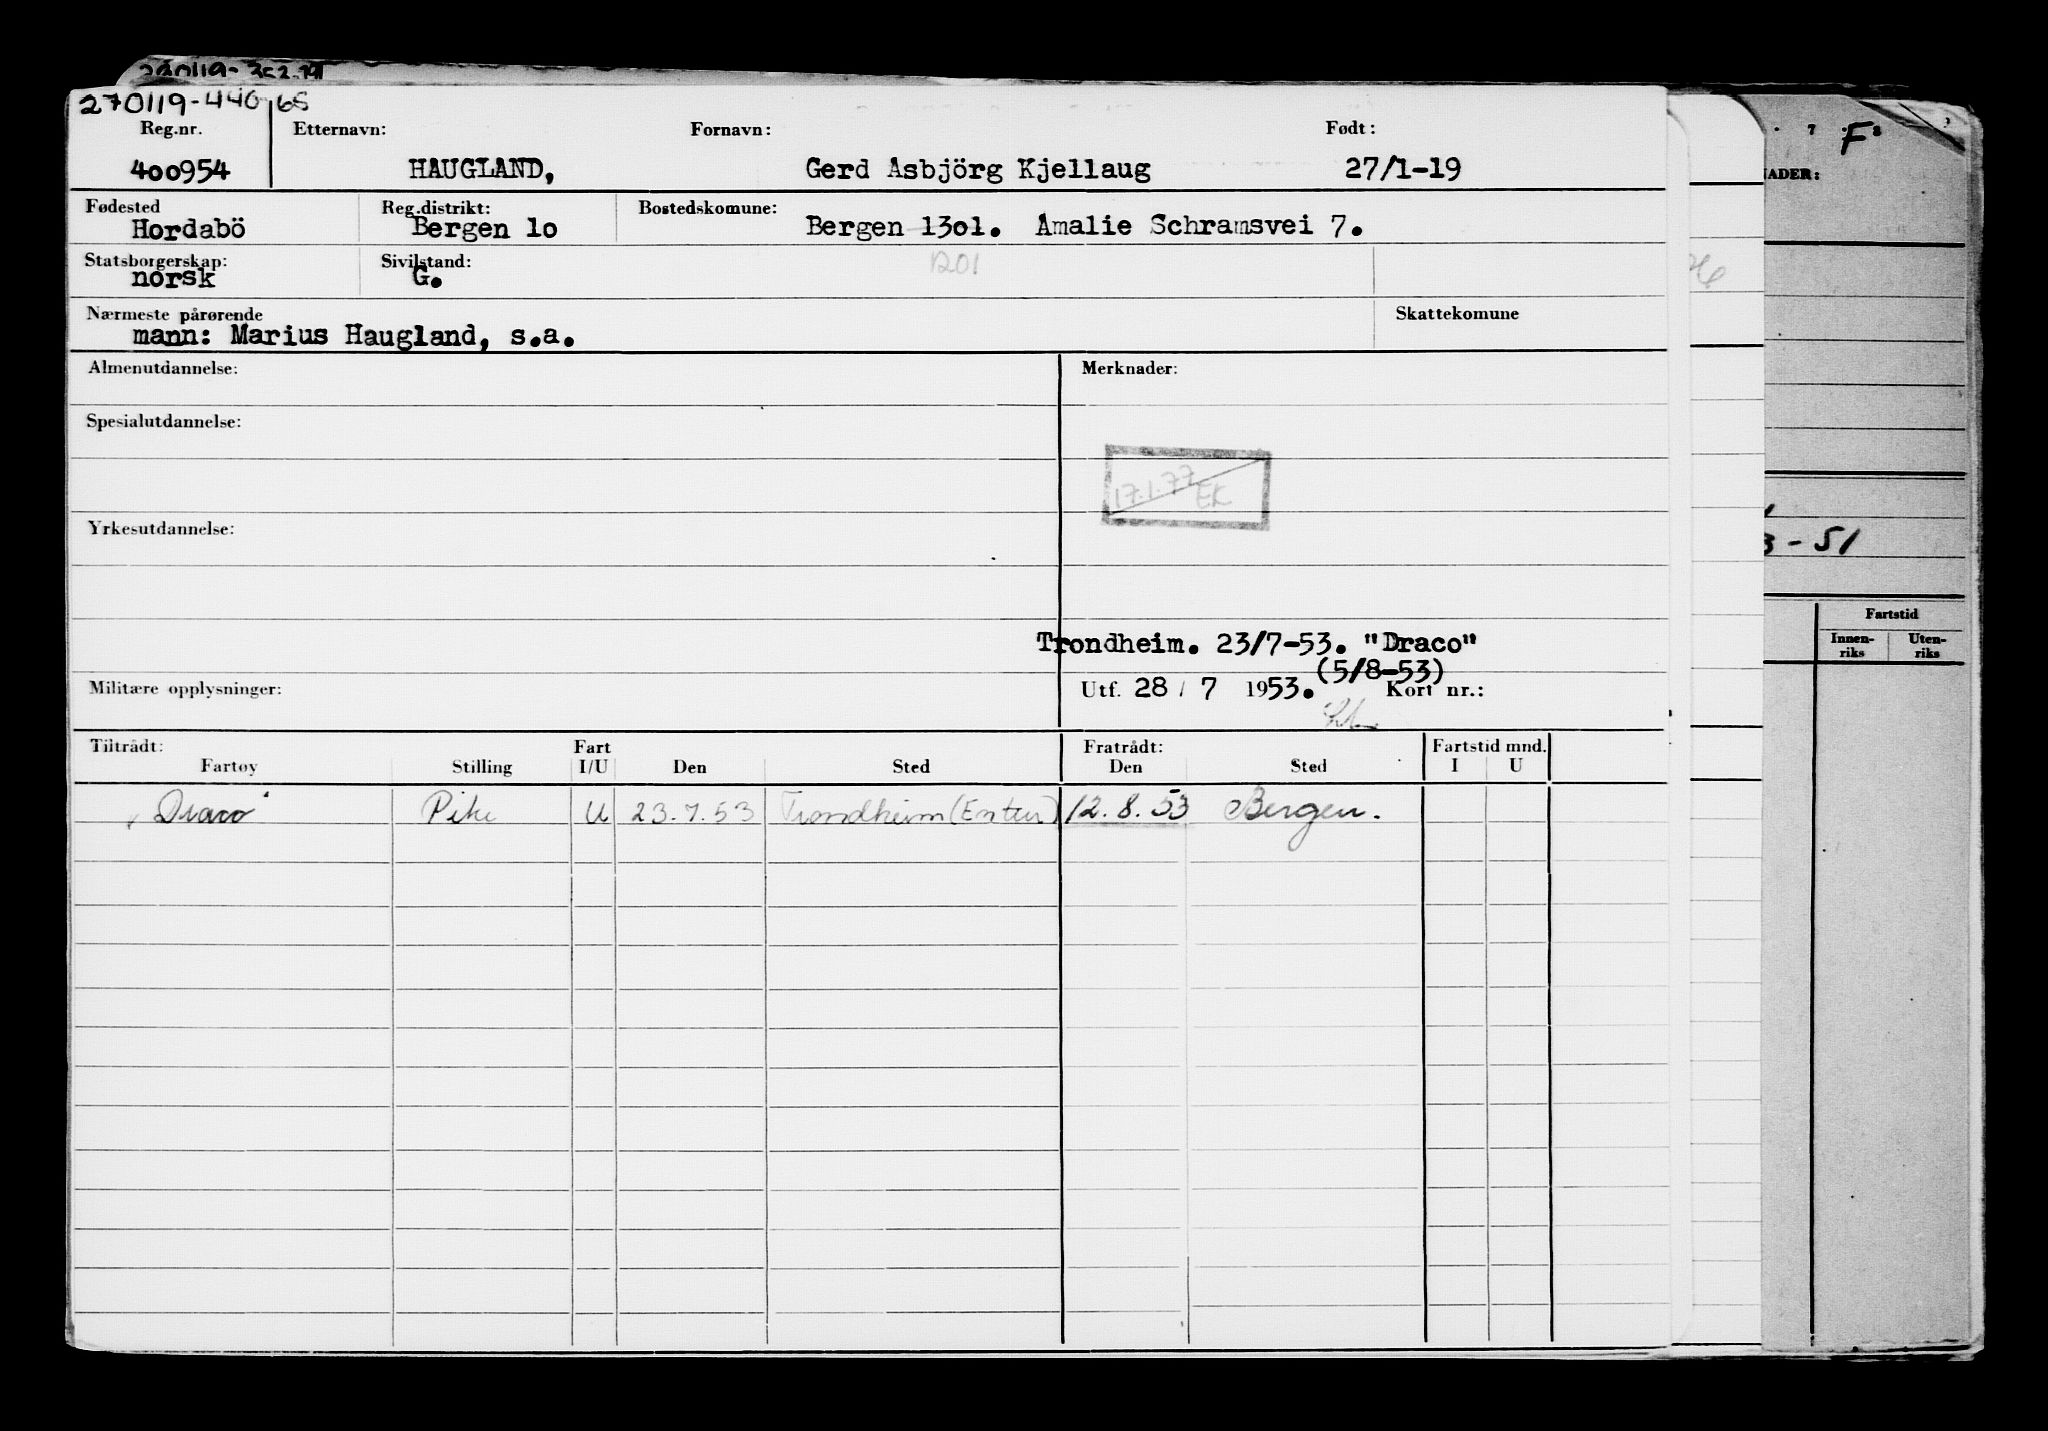 270119-440 65
Reg.nr. Etternavn: Fornavn: Født:
400954 HAUGLAND, Gerd Asbjörg Kjellaug 27/1-19
Fødested Reg.distrikt: Bostedskomune:
Hordabö Bergen lo Bergen 13ol. Amalie Schramsvei 7.
Statsborgerskap: Sivilstand: 1201
norsk G.
Nærmeste pårørende Skattekomune
mann: Marius Haugland, s.a.
Almenutdannelse: Merknader:
Spesialutdannelse:
17.1.77 EK
Yrkesutdannelse:
Trondheim. 23/7-53. "Draco"
(5/8-53)
Militære opplysninger: Utf. 28 / 7 1953. Kort nr.:
Tiltrådt: Fart Fratrådt: Fartstid mnd.
Fartøy Stilling I/U Den Sted Den Sted I U
"Draco" Pike U 23.7.53 Trondheim 12.8.53 Bergen.
7 F 8
NADER:
- 51
Fartstid
Innen- Uten-
riks riks